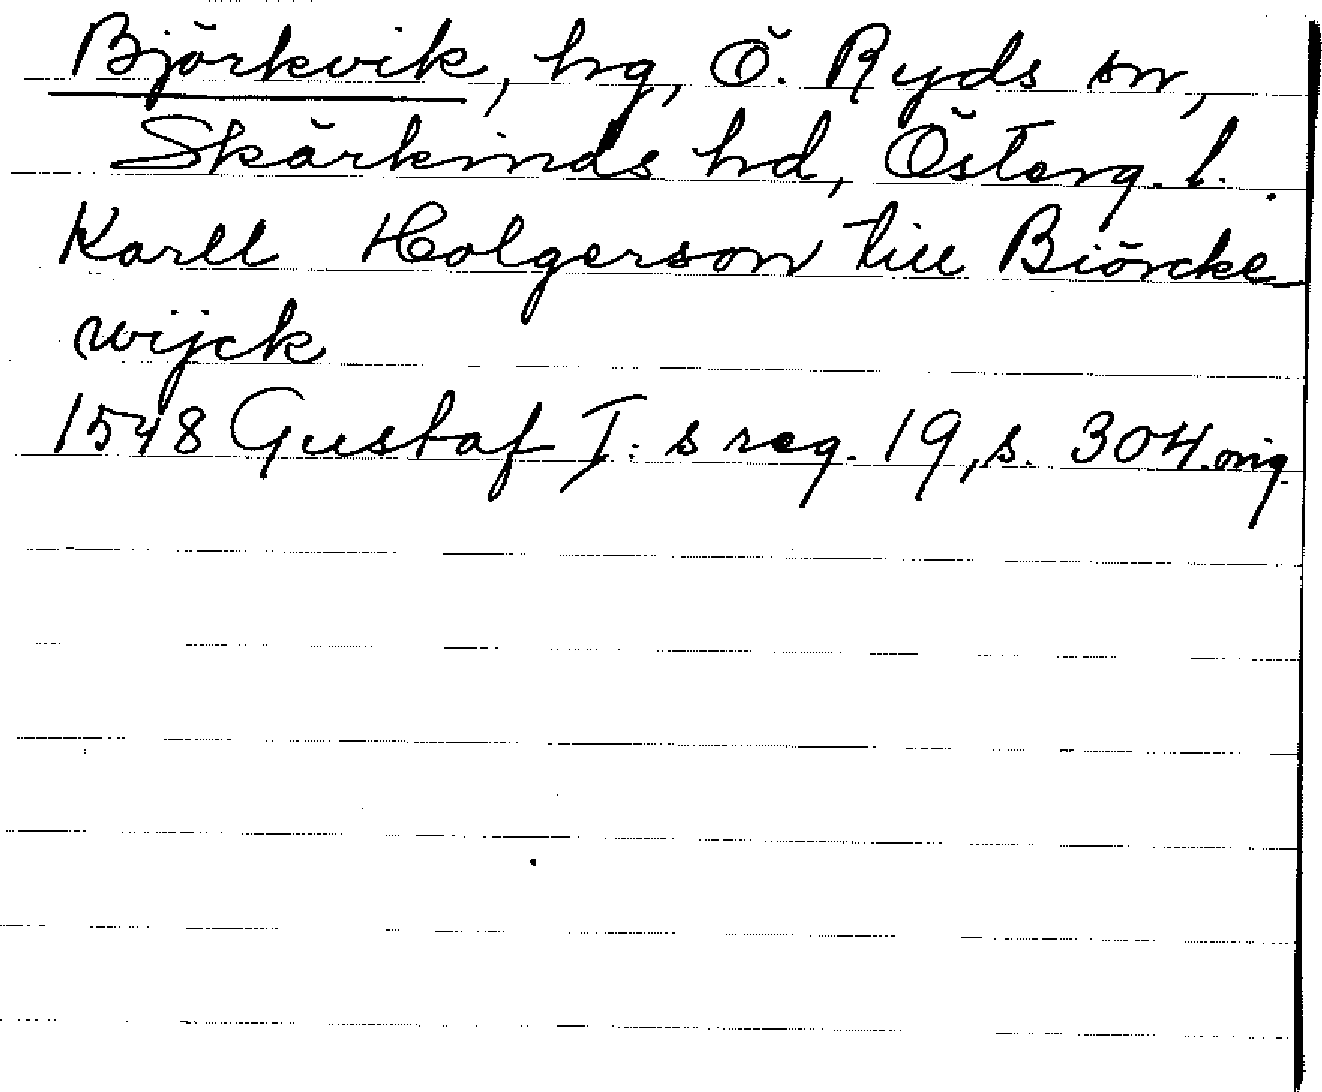 Björkvik, hg, Ö. Ryds sn,
Skärkinds hd, Österg. l.
Karll Holgerson till Biörcke
wijck
1548 Gustaf I:s reg. 19, s. 304. orig.